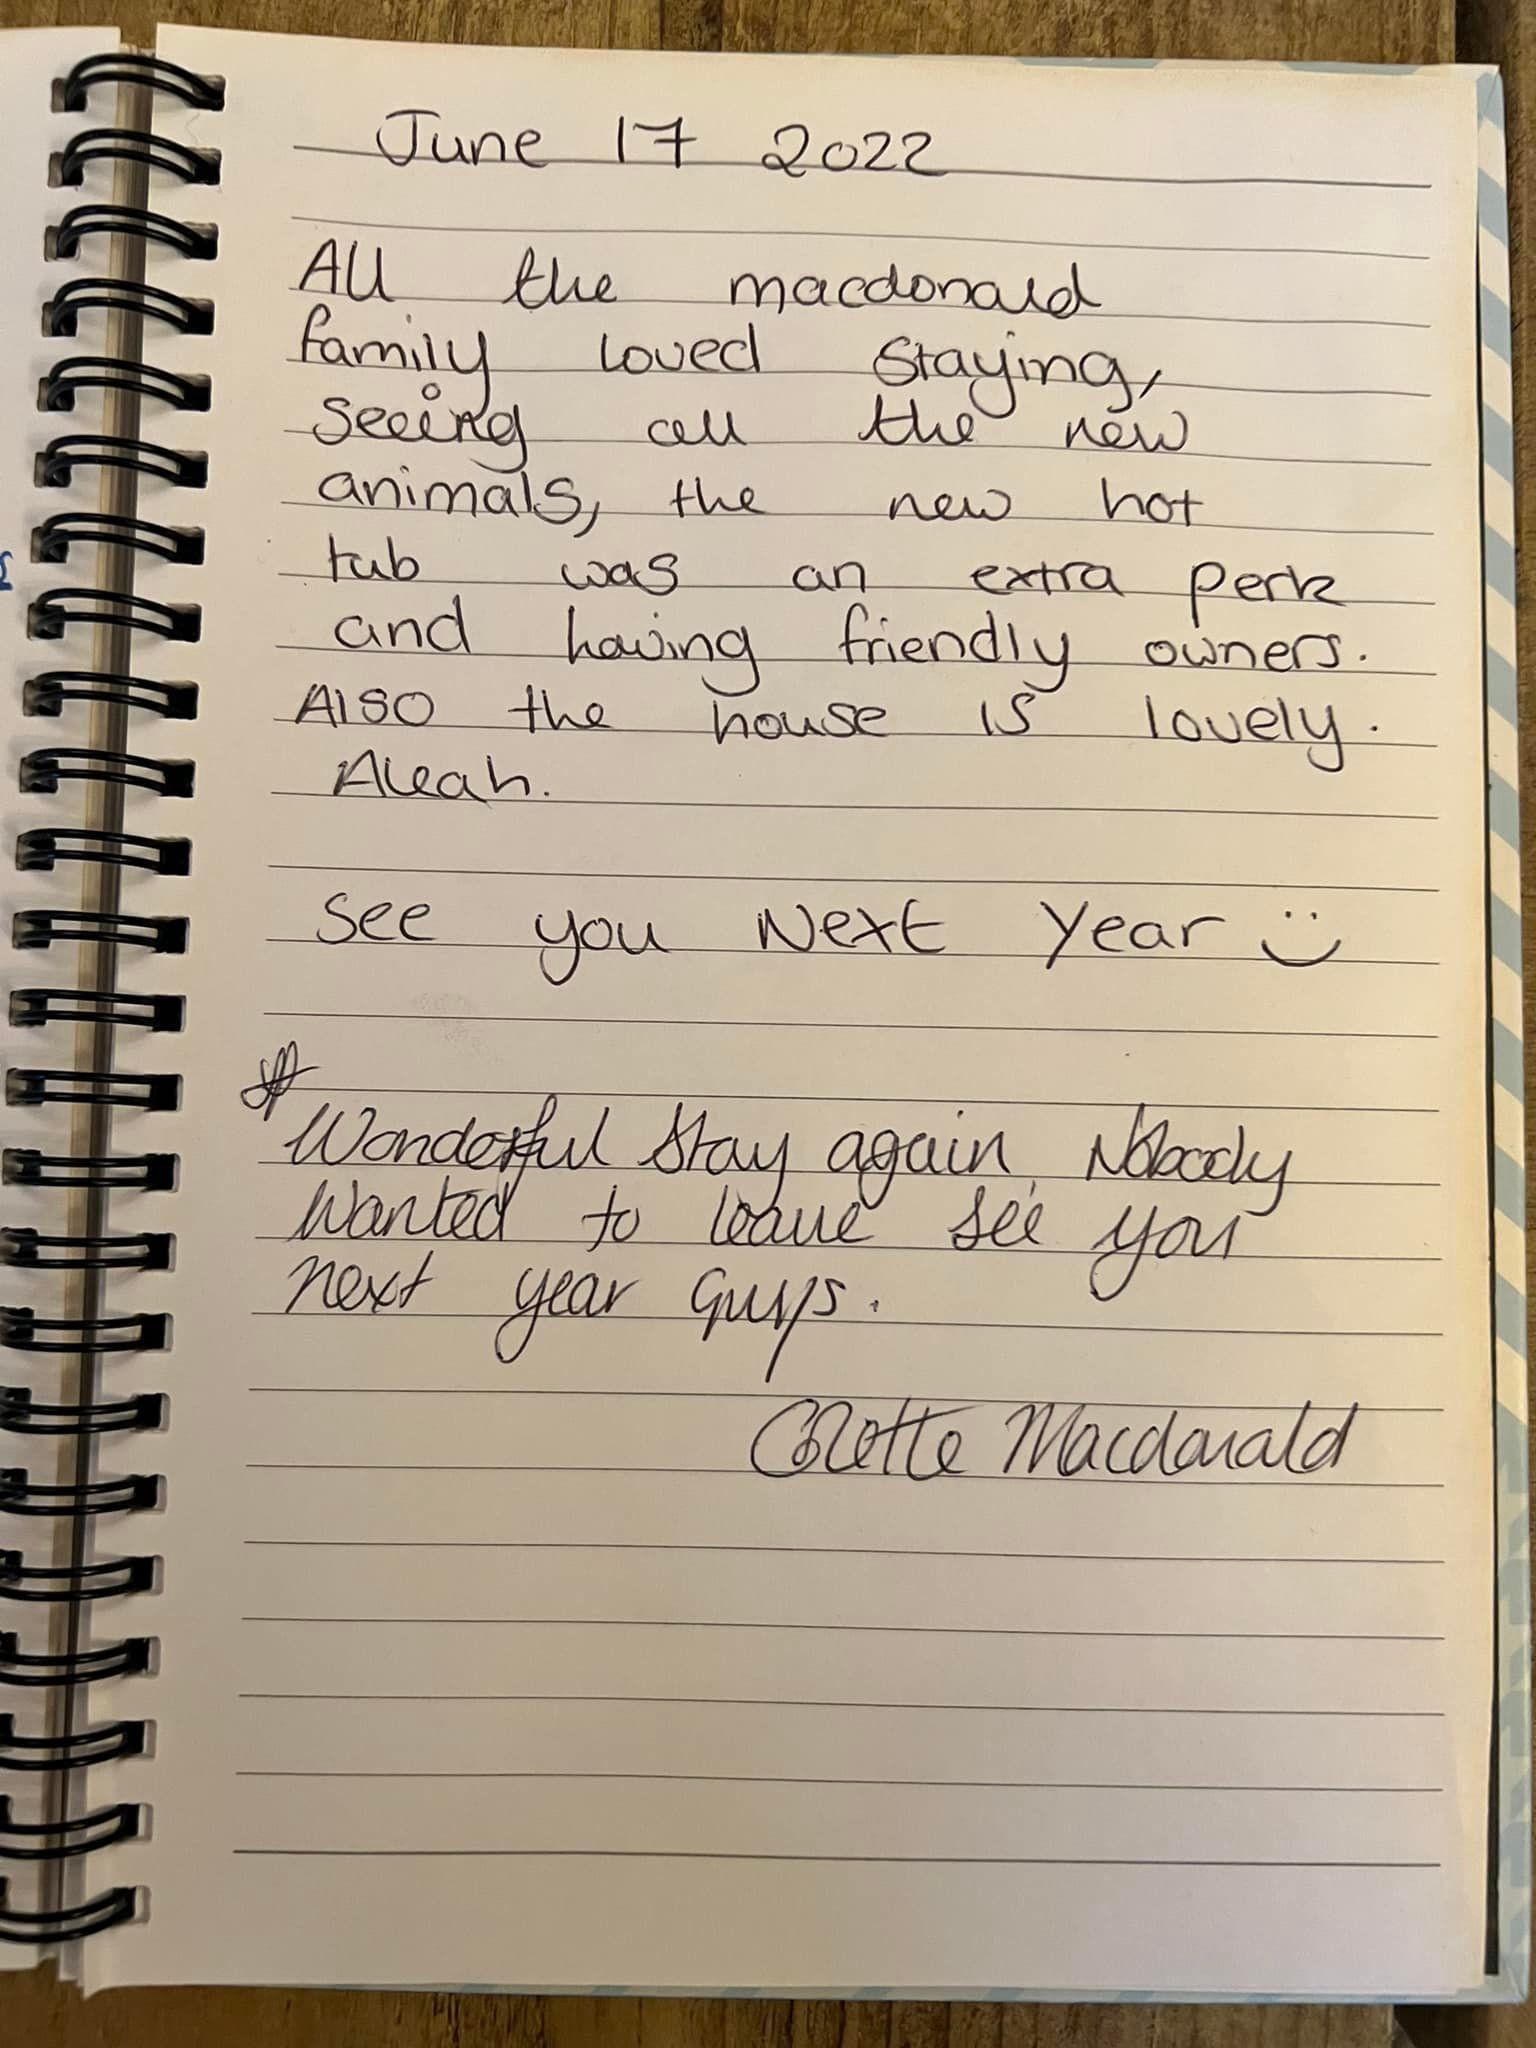 June 17 2022
All the macdonald
family loved staying,
seeing all the new
animals, the new hot
tub was an extra perk
and having friendly owners.
Also the house is lovely.
Aleah.
See you Next Year
Wonderful stay again. Nobody
wanted to leave see you
next year Guys.
Colette Macdonald